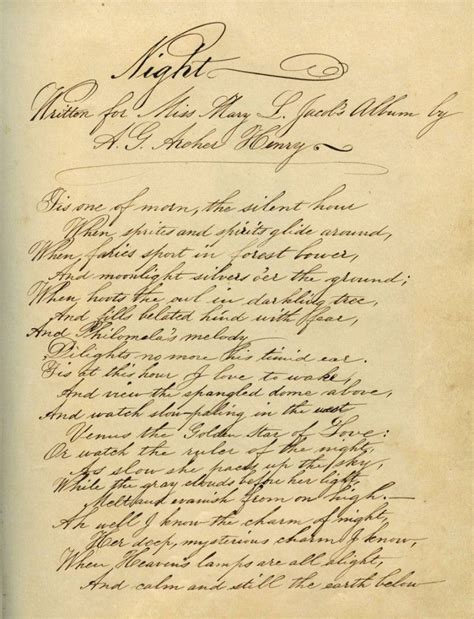 Night
Written for Miss Mary L. Jacob's Album by
A. G. Archer Henry
Tis one of morn, the silent hour
When sprites and spirits glide around,
When faries sport in forest bower,
And moonlight silvers o'er the ground;
When hoots the owl in darkling tree,
And fills belated hind with fear,
And Philomela's melody
Dilights no more his timid ear.
Tis at this hour I love to wake,
And view the spangled dome above,
And watch slow-paling in the west
Venus the Golden Star of Love:
Or watch the ruler of the night,
As slow she paces up the sky,
While the gray clouds before her light
Melt and evanish from on high.—
Ah well I know the charm of night,
Her deep, mysterious charm I know,
When Heavens lamps are all alight,
And calm and still the earth below